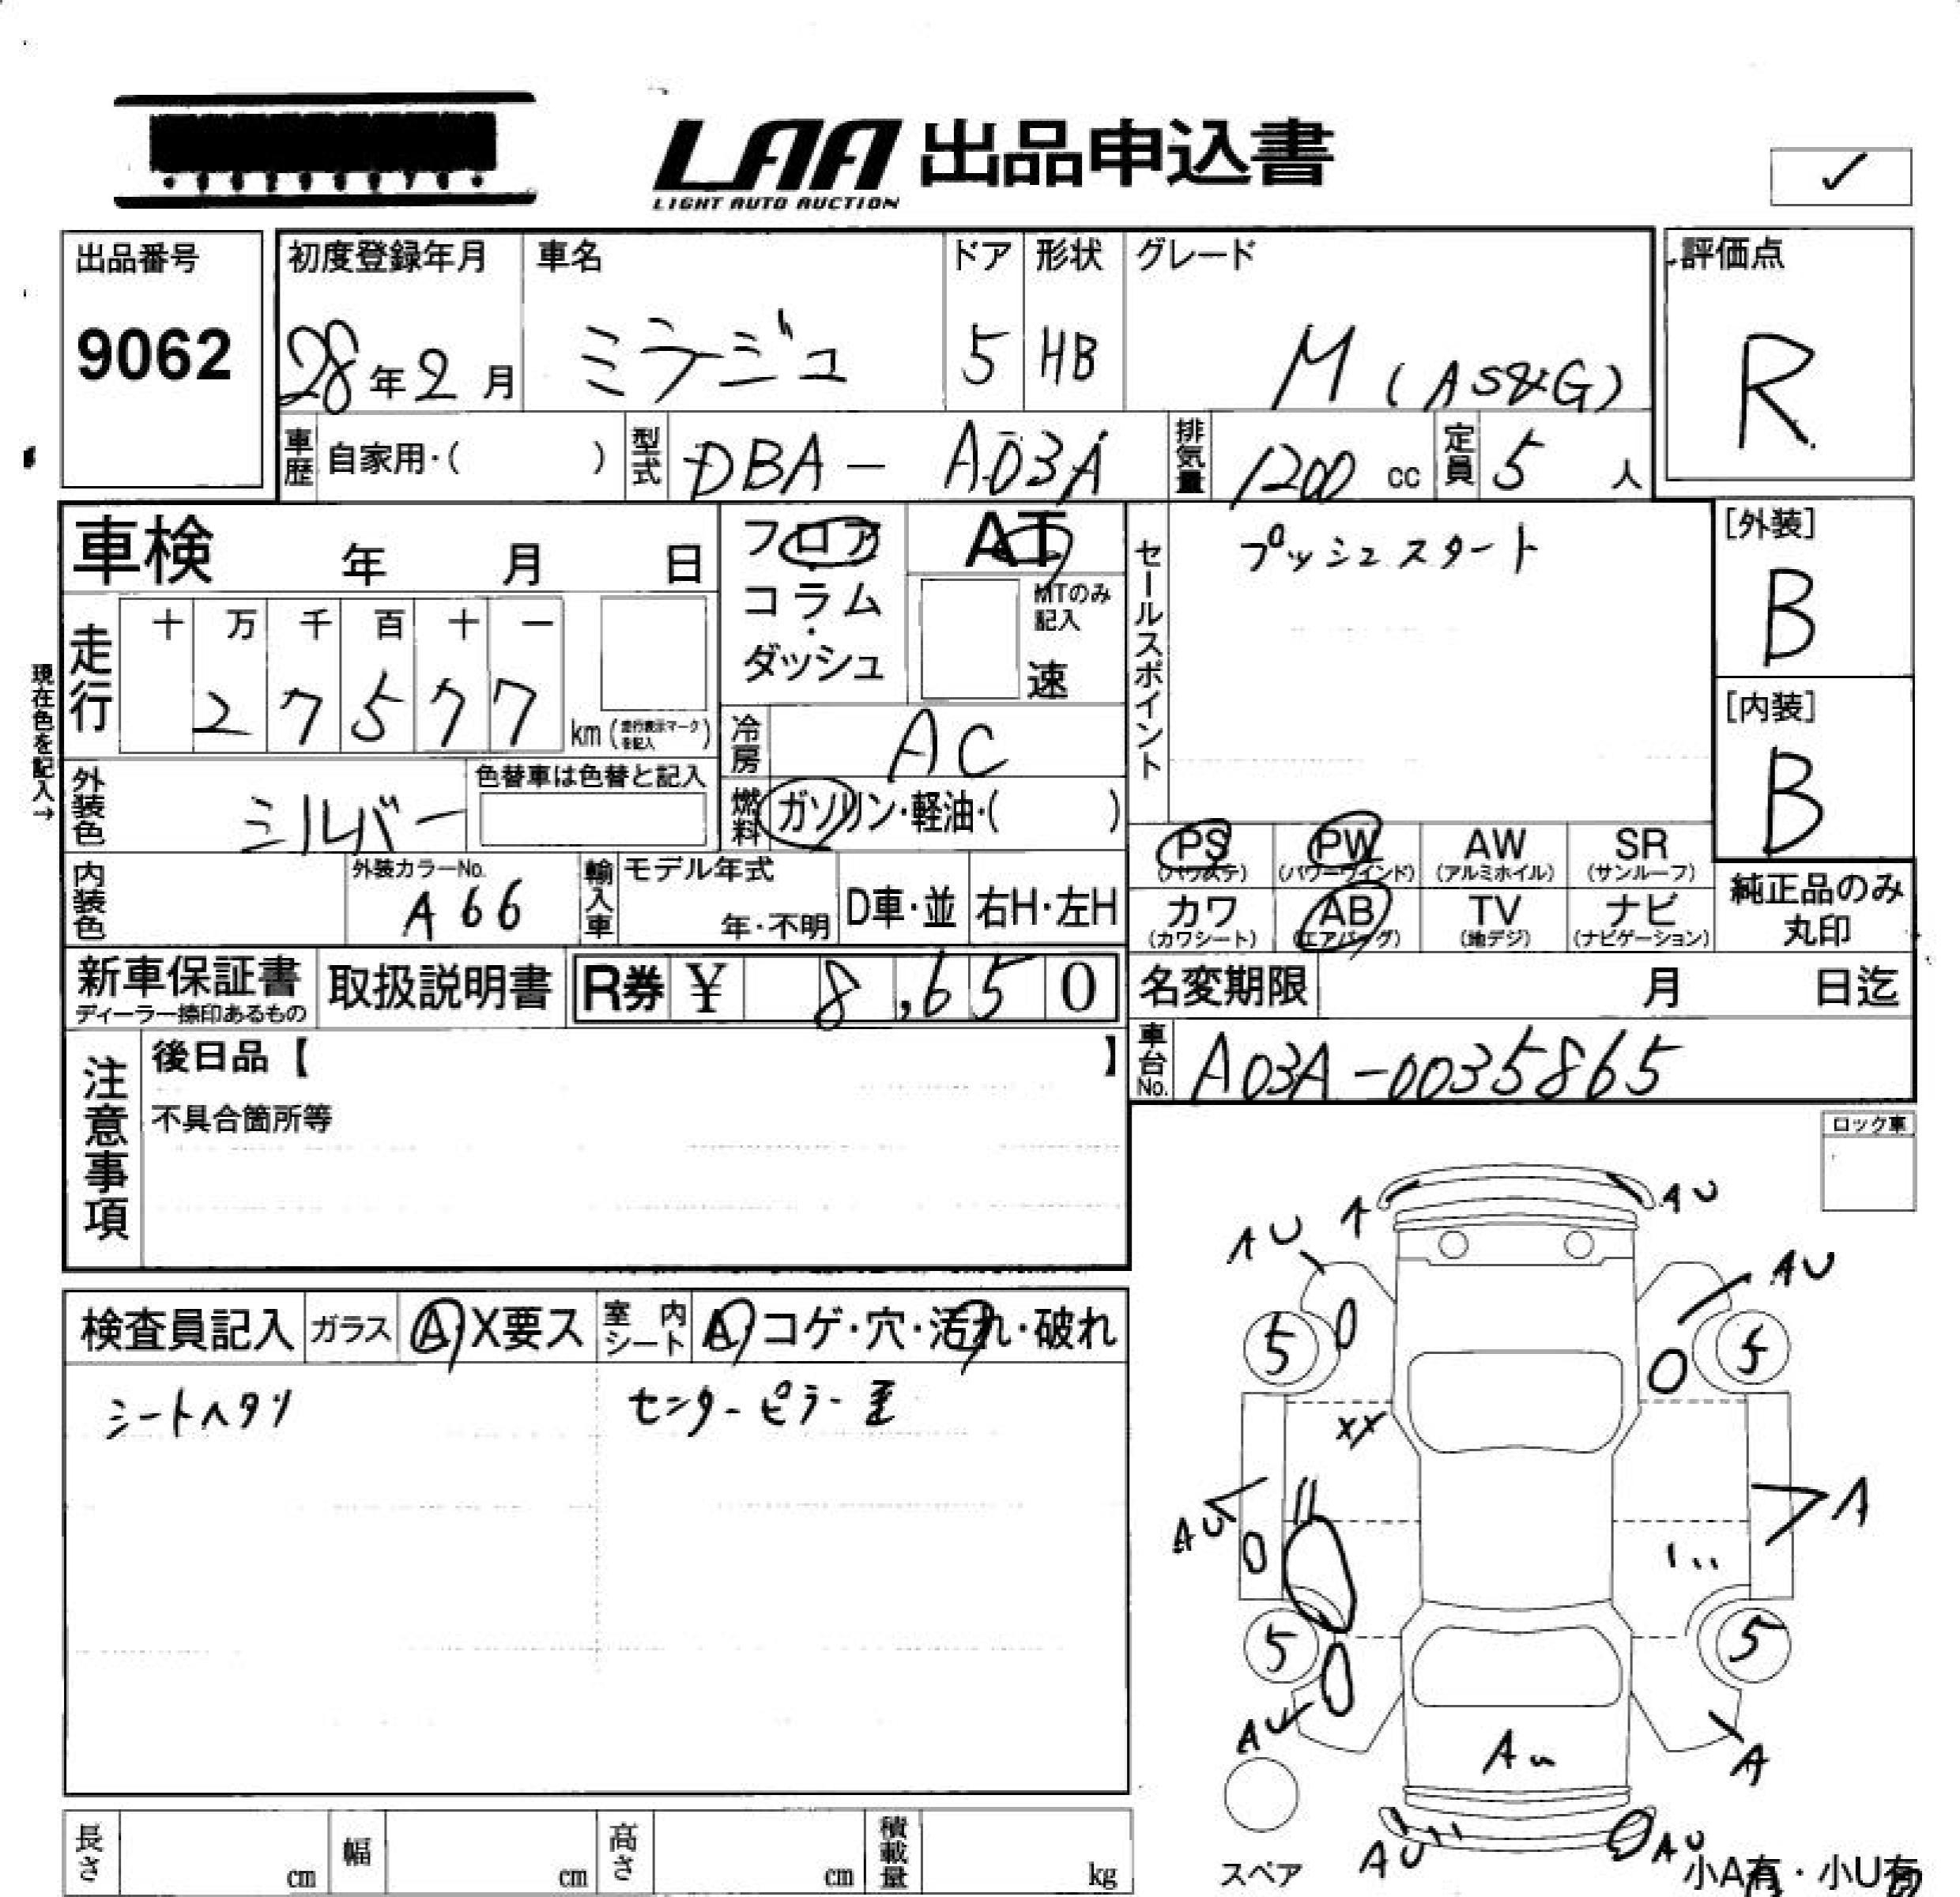 LAA 出品申込書
LIGHT AUTO AUCTION
✓
出品番号
9062
初度登録年月
28年2月
車名
ミラージュ
ドア
5
形状
HB
グレード
M (AS&G)
評価点
R
車歴 自家用・( )
型式 DBA - A03A
排気量 1200 cc
定員 5 人
車検 年 月 日
フロア
コラム
ダッシュ
AT
MTのみ記入
速
セールスポイント
プッシュスタート
[外装]
B
[内装]
B
現在色を記入→
走行
十 万 千 百 十 一
2 7 5 7 7
km (走行表示マークを記入)
冷房 AC
燃料 ガソリン・軽油・( )
外装色 シルバー
色替車は色替と記入
内装色
外装カラーNo.
A66
輸入車
モデル年式
年・不明
D車・並
右H・左H
PS (パワステ)
PW (パワーウインド)
AW (アルミホイル)
SR (サンルーフ)
カワ (カワシート)
AB (エアバッグ)
TV (地デジ)
ナビ (ナビゲーション)
純正品のみ
丸印
新車保証書
ディーラー捺印あるもの
取扱説明書
R券 ¥ 8,650
名変期限 月 日迄
車台No. A03A-0035865
注意事項
後日品【 】
不具合箇所等
ロック車
検査員記入
ガラス A・X要ス
室内シート A・コゲ・穴・汚れ・破れ
シートヘタリ
センターピラー歪
A
AU
AU
AU
5
5
XX
AU
A
5
5
AU
A
AU
AU
AU
スペア
小A有・小U有
長さ cm
幅 cm
高さ cm
積載量 kg